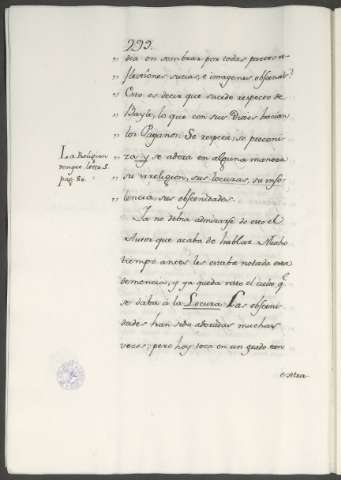 999.
" dea en sembrar por todas partes re-
" flexiones sucias, e imagenes obscenas?
" Esto es decir que sucede respecto de
" Bayle, lo que con sus Dioses hacian
" los Paganos. Se respeta, se preconi-
" za, y se adora en alguna manera
" su irreligion, sus locuras, su inso-
" lencia, sus obscenidades.
La Religion
vengee tom. 5.
pag. 80.
Ya no debia admirarse de esto el
Autor que acaba de hablar. Mucho
tiempo antes les estaba notada esta
demencia, y ya queda visto el culto q.e
se daba à la Locura. Las obsceni-
dades han sido adoradas muchas
veces; pero hoy toca en un grado con